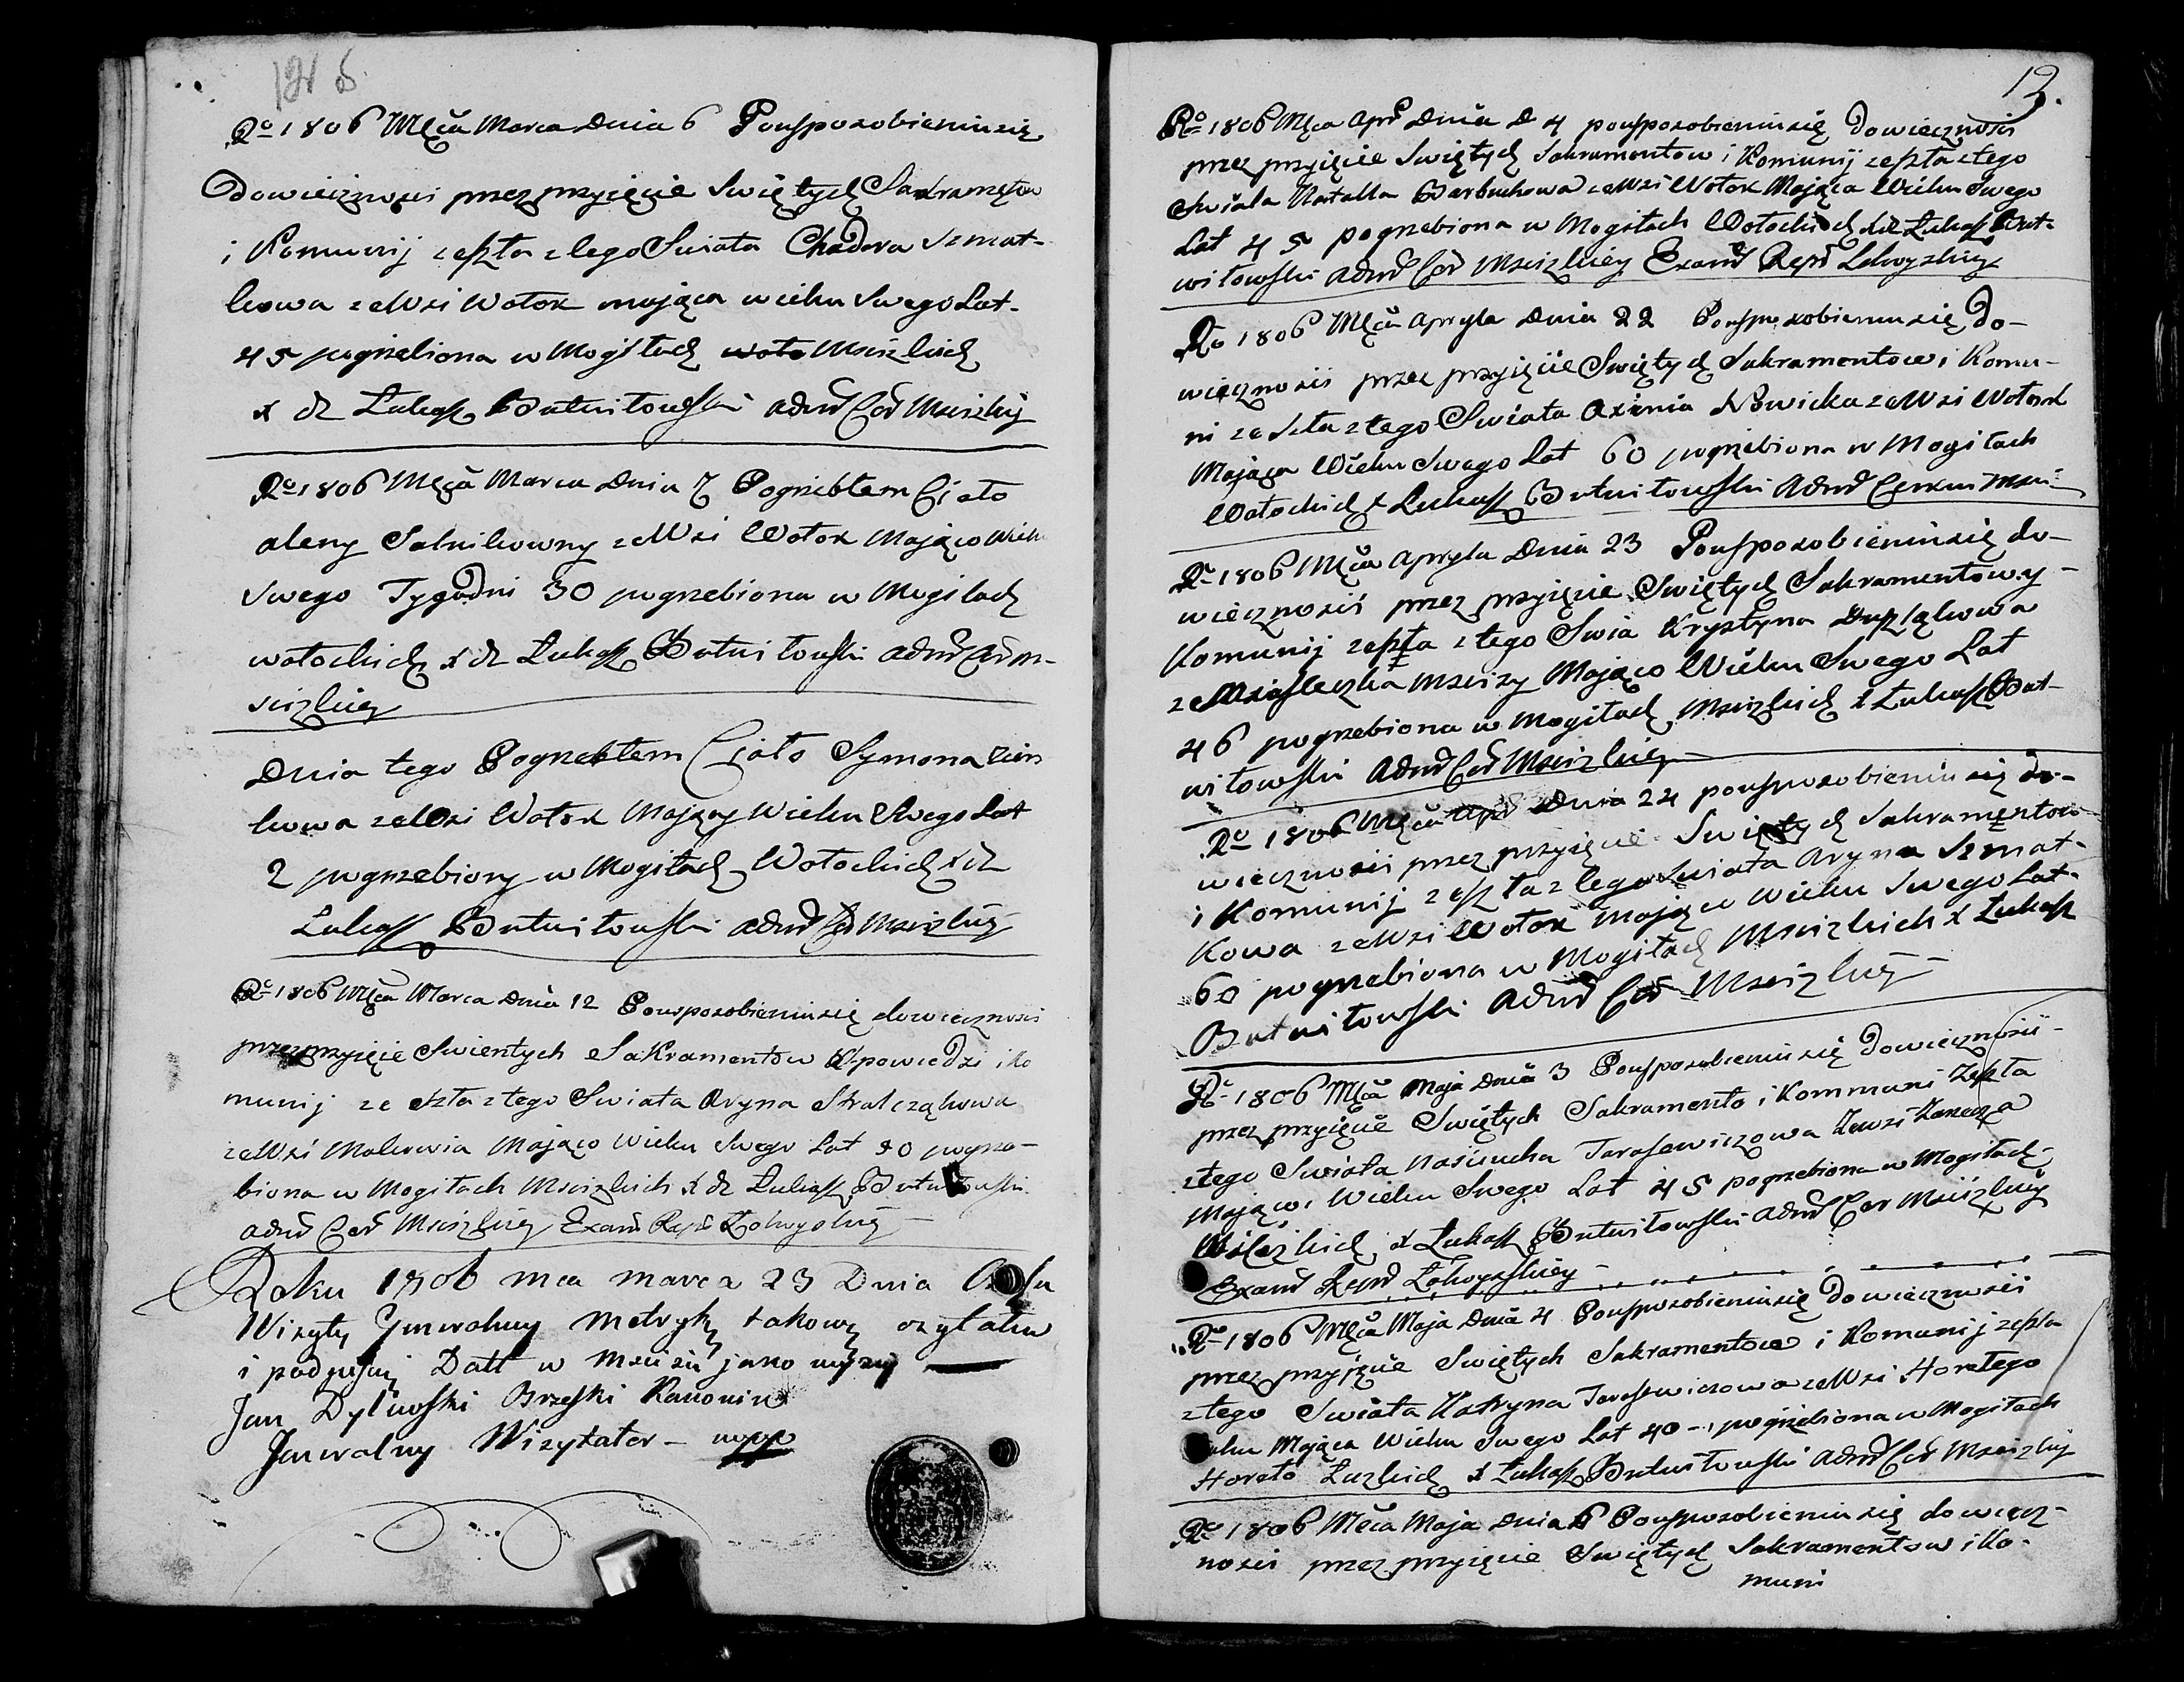 Ro 1806 Mca Marca Dnia 6 Pousposobieniu się
Dowieczności przez przyięcie Swiętych Sakramętow
i Komunij zeszła z tego Swiata Chadora Szmat-
kowa ze Wsi Wołok mająca wieku Swego Lat.
45 pogrzebiona w Mogiłach Msciżkich
x dz Łukasz Butwiłowski admr Cer Msciżkij
Ro 1806 Mca Marca Dnia 7 Pogrzebłem Ciało
aleny Salnikowny ze Wsi Wołok Mająco Wieku
Swego Tygodni 30 pogrzebiona w Mogiłach
wołockich x dz Łukasz Butwiłowski admr Cer M-
sciżkiey
Dnia tego Pogrzebłem Ciało Symona
kowa ze Wsi Wołok Mający Wieku Swego Lat
2 pogrzebiony w Mogiłach Wołockich x dz
Łukasz Butwiłowski admr Cer Msciżkiy
Ro 1806 Mca Marca Dnia 12 Pousposobieniu się dowieczności
przez przyięcie Swientych Sakramentow Spowiedzi i Ko
munij ze szła z tego Swiata Aryna Stralcząkowa
ze Wsi Malerowia Mająco Wieku Swego Lat 80 pogrze-
biona w Mogiłach Msciżkich x dz Łukasz Butwiłowski
admr Cer Msciżkiey Exam Repr Łohoyskiy
Roku 1806 mca marca 23 Dnia
Wizyty Jeneralney Metrykę takową czytałem
i podpisuię Datt w Msciżu jako wyżey
Jan Dyliwski Brzeski Kanonik
Jeneralny Wizytator - mppr
12.
Ro 1806 Mca Apr Dnia D 4 pousposobieniu się Dowieczności
przez przyięcie Swiętych Sakramentow i Komunij zeszła z tego
Swiata Natalla Barbuchowa ze Wsi Wołok Mająca Wieku Swego
Lat 45 pogrzebiona w Mogiłach Wołockich x dz Łukasz But-
wiłowski admr Cer Msciżkiey Exam Repr Łohoyskiey
Ro 1806 Mca Apryla Dnia 22 Pousposobieniu się Do-
wieczności przez przyięcie Swiętych Sakramentow i Komu-
ni ze szła z tego Swiata Axinia Nowicka ze Wsi Wołok
Mająca Wieku Swego Lat 60 pogrzebiona w Mogiłach
Wołockich x Łukasz Butwiłowski Admr Cerkwi Msci
Ro 1806 Mca Apryla Dnia 23 Pousposobieniu się do-
wieczności przez przyięcie Swiętych Sakramentow y
Komunij zeszła z tego Swia Krystyna
ze Miasteczka Mscizy Mająco Wieku Swego Lat
46 pogrzebiona w Mogiłach Msciżkich x Łukasz But-
wiłowski Admr Cer Msciżkiey
Ro 1806 Mca Apr Dnia 24 pousposobieniu się do-
wieczności przez przyięcie Swiętych Sakramentow
i Komunij zeszła z tego Swiata Aryna Szmat-
Kowa ze Wsi Wołok Mająco Wieku Swego Lat.
60 pogrzebiona w Mogiłach Msciżkich x Łukasz
Butwiłowski Admr Cer Msciżkiy
Ro 1806 Mca Maja Dnia 3 Pousposobieniu się Dowieczności
przez przyięcie Swiętych Sakramento i Kommuni Zeszła
z tego Swiata Nasciucha Tarasewiczowa Zewsi
Mająco Wieku Swego Lat 45 pogrzebiona w Mogiłach
x Łukasz Butwiłowski admr Cer Msciżkiy
Exam Repr Łohoyskiey
Ro 1806 Mca Maja Dnia 4 Pousposobieniu się Dowieczności
przez przyięcie Swiętych Sakramentow i Komunij zeszła
z tego Swiata Katryna Tarasewiczowa ze Wsi Horełego
Mająca Wieku Swego Lat 40 - pogrzebiona w Mogiłach
Horeło Łuzkich x Łukasz Butwiłowski admr Cer Msciżkiy
Ro 1806 Mca Maja Dnia 6 Pousposobieniu się dowiecz-
ności przez przyięcie Swiętych Sakramentow i Ko-
muni